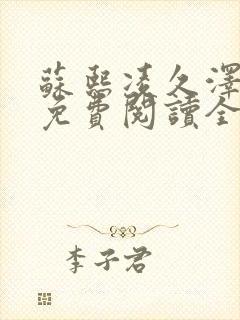 蘇熙凌久澤
免費閱讀全
李子君